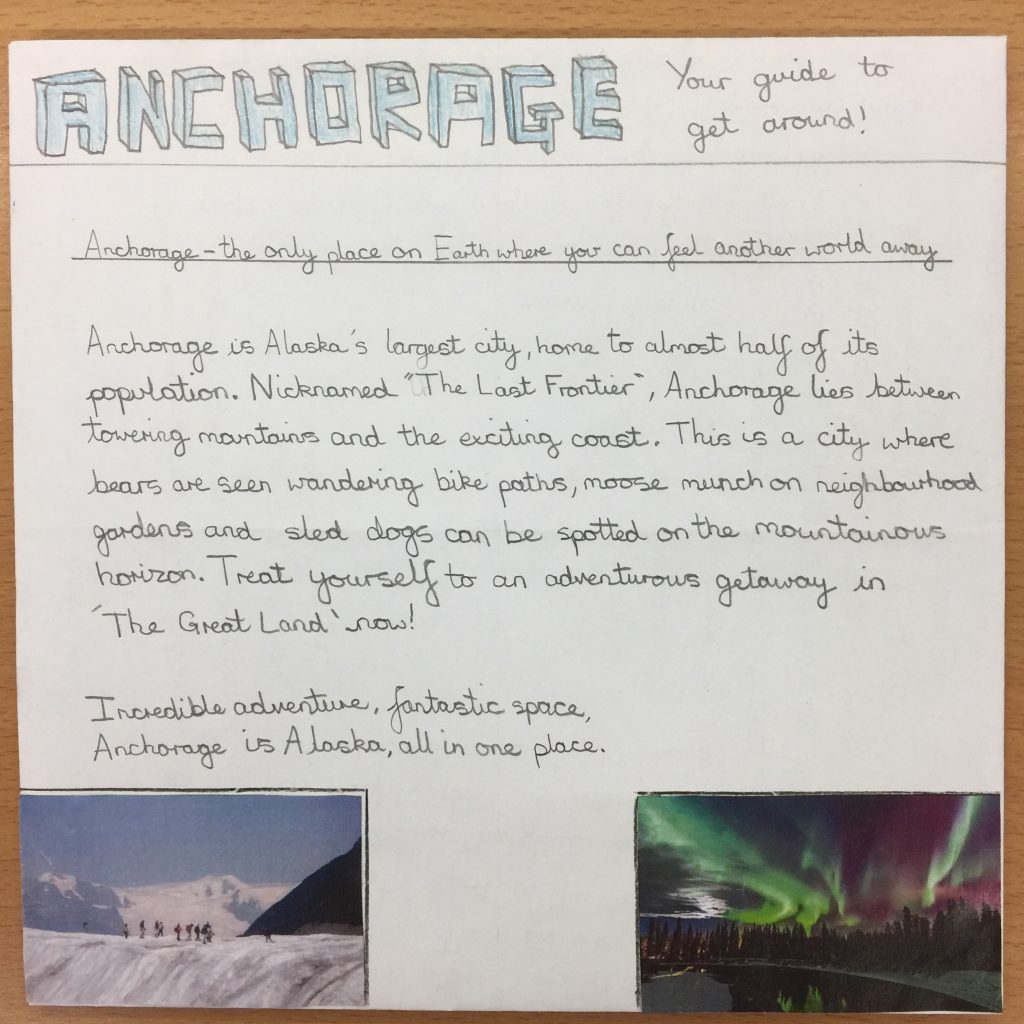 ANCHORAGE
Your guide to
get around!
Anchorage - the only place on Earth where you can feel another world away
Anchorage is Alaska's largest city, home to almost half of its
population. Nicknamed "The Last Frontier", Anchorage lies between
towering mountains and the exciting coast. This is a city where
bears are seen wandering bike paths, moose munch on neighbourhood
gardens and sled dogs can be spotted on the mountainous
horizon. Treat yourself to an adventurous getaway in
'The Great Land' now!
Incredible adventure, fantastic space,
Anchorage is Alaska, all in one place.